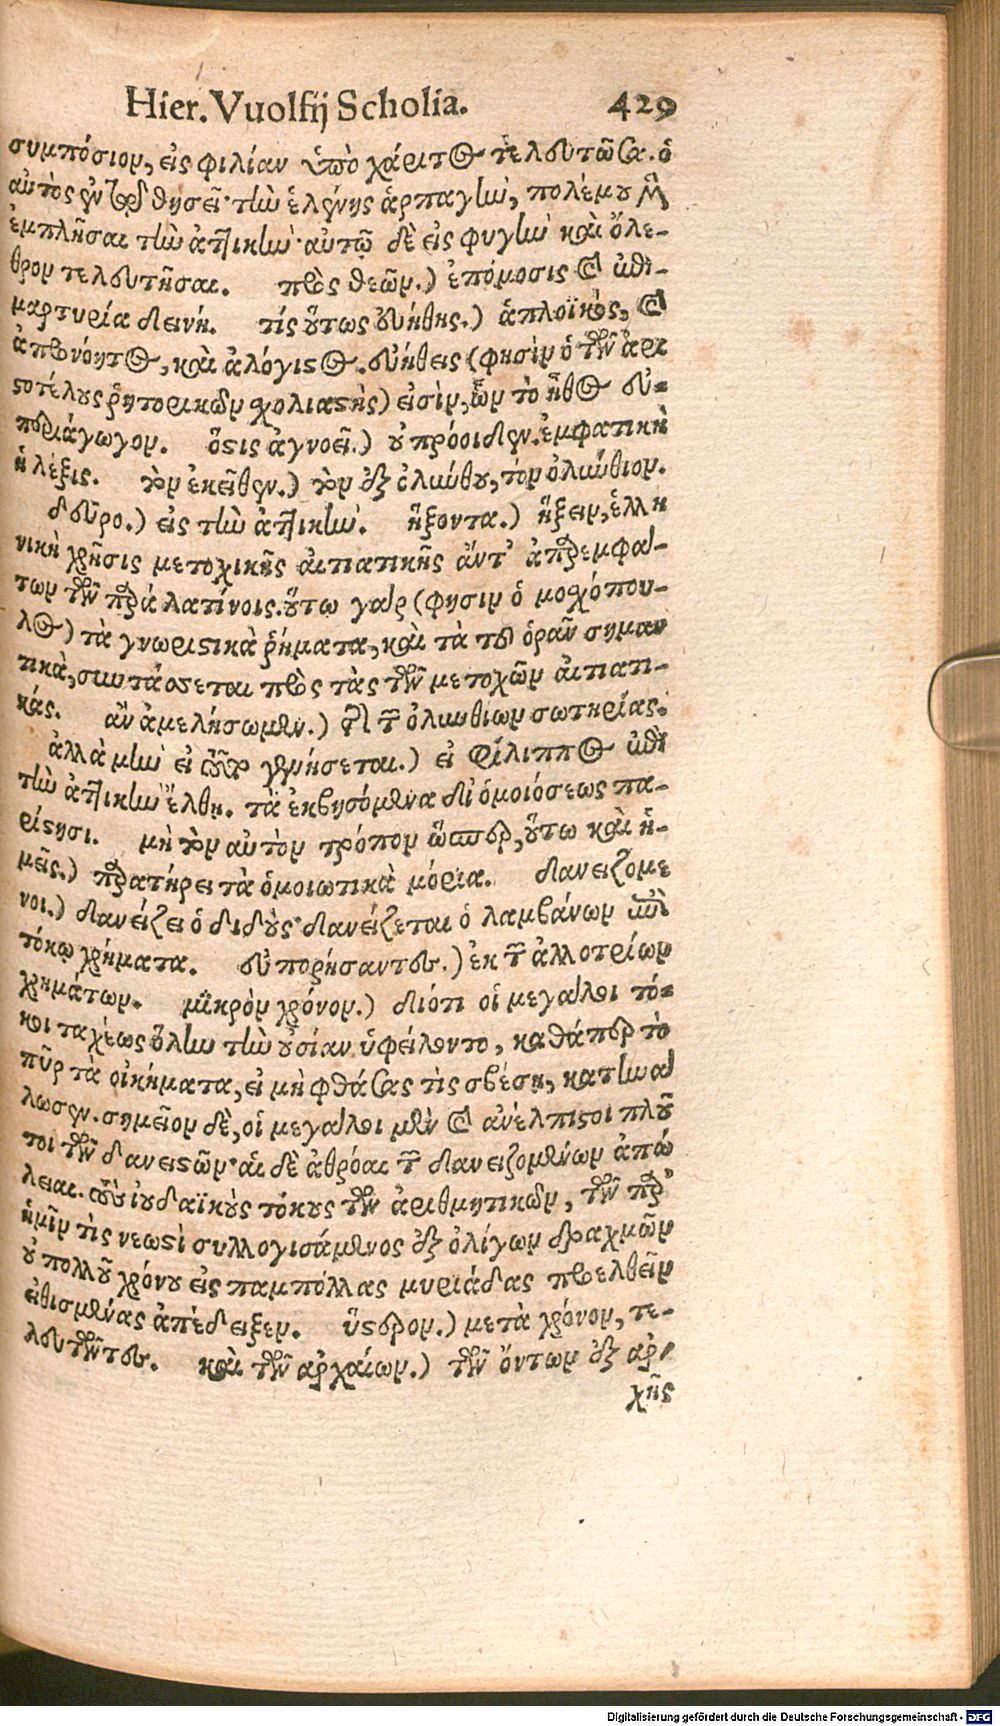 Hier. Vuolfij Scholia. 429
συμπόσιον, εἰς φιλίαν ὑπὸ χάριτος τελευτῶσα. ὁ
αὐτὸς ἐν τῇ θήσει· τὴν ἑλένης ἁρπαγὴν, πολέμου μὲν
ἐμπλῆσαι τὴν ἀττικὴν· αὐτῷ δὲ εἰς φυγὴν καὶ ὄλε-
θρον τελευτῆσαι. πρὸς θεῶν.) ἐπόμοσις καὶ ἐπι-
μαρτυρία δεινή. τίς οὕτως εὐήθης.) ἁπλοϊκὸς, καὶ
ἀπρονόητος, καὶ ἀλόγιστος. εὐήθεις (φησὶν ὁ τῶν ἀρι
στοτέλους ῥητορικῶν σχολιαστὴς) εἰσὶν, ὧν τὸ ἦθος εὐ-
περιάγωγον. ὅστις ἀγνοεῖ.) οὐ πρόοιδεν. ἐμφατικὴ
ἡ λέξις. τὸν ἐκεῖθεν.) τὸν ἐξ ὀλύνθου, τὸν ὀλύνθιον.
δεῦρο.) εἰς τὴν ἀττικὴν. ἥξοντα.) ἥξειν, ἑλλη
νικὴ χρῆσις μετοχικῆς αἰτιατικῆς ἀντ' ἀπαρεμφά-
των τῶν παρὰ λατίνοις. οὕτω γὰρ (φησὶν ὁ μοσχόπου-
λος) τὰ γνωριστικὰ ῥήματα, καὶ τὰ τοῦ ὁρᾶν σημαν
τικὰ, συντάσσεται πρὸς τὰς τῶν μετοχῶν αἰτιατι-
κάς. ἂν ἀμελήσωμεν.) περὶ τῆς ὀλυνθίων σωτηρίας.
ἀλλὰ μὴν εἰ τοῦτο γενήσεται.) εἰ φίλιππος ἐπὶ
τὴν ἀττικὴν ἔλθῃ. τὰ ἐκβησόμενα δι' ὁμοιόσεως πα-
ρίστησι. μὴ τὸν αὐτὸν τρόπον ὥσπερ, οὕτω καὶ ἡ-
μεῖς.) παρατήρει τὰ ὁμοιωτικὰ μόρια. δανειζόμε
νοι.) δανείζει ὁ διδοὺς· δανείζεται ὁ λαμβάνων ἐπὶ
τόκῳ χρήματα. εὐπορήσαντες.) ἐκ τῶν ἀλλοτρίων
χρημάτων. μικρὸν χρόνον.) διότι οἱ μεγάλοι τό-
κοι ταχέως ὅλην τὴν οὐσίαν ὑφείλοντο, καθάπερ τὸ
πῦρ τὰ οἰκήματα, εἰ μὴ φθάσας τὶς σβέσῃ, κατηνάλ
λωσεν. σημεῖον δὲ, οἱ μεγάλοι μὲν καὶ ἀνέλπιστοι πλοῦ
τοι τῶν δανειστῶν· αἱ δὲ ἀθρόαι τῶν δανειζομένων ἀπώ
λειαι. τοὺς ἰουδαϊκοὺς τόκους τῶν ἀριθμητικῶν, τῶν παρ'
ἡμῖν τὶς νεωστὶ συλλογισάμενος ἐξ ὀλίγων δραχμῶν
οὐ πολλοῦ χρόνου εἰς παμπόλλας μυριάδας προελθεῖν
εἰθισμένας ἀπέδειξεν. ὕστερον.) μετὰ χρόνον, τε-
λευτῶντες. καὶ τῶν ἀρχαίων.) τῶν ὄντων ἐξ ἀρ-
χῆς
Digitalisierung gefördert durch die Deutsche Forschungsgemeinschaft - DFG